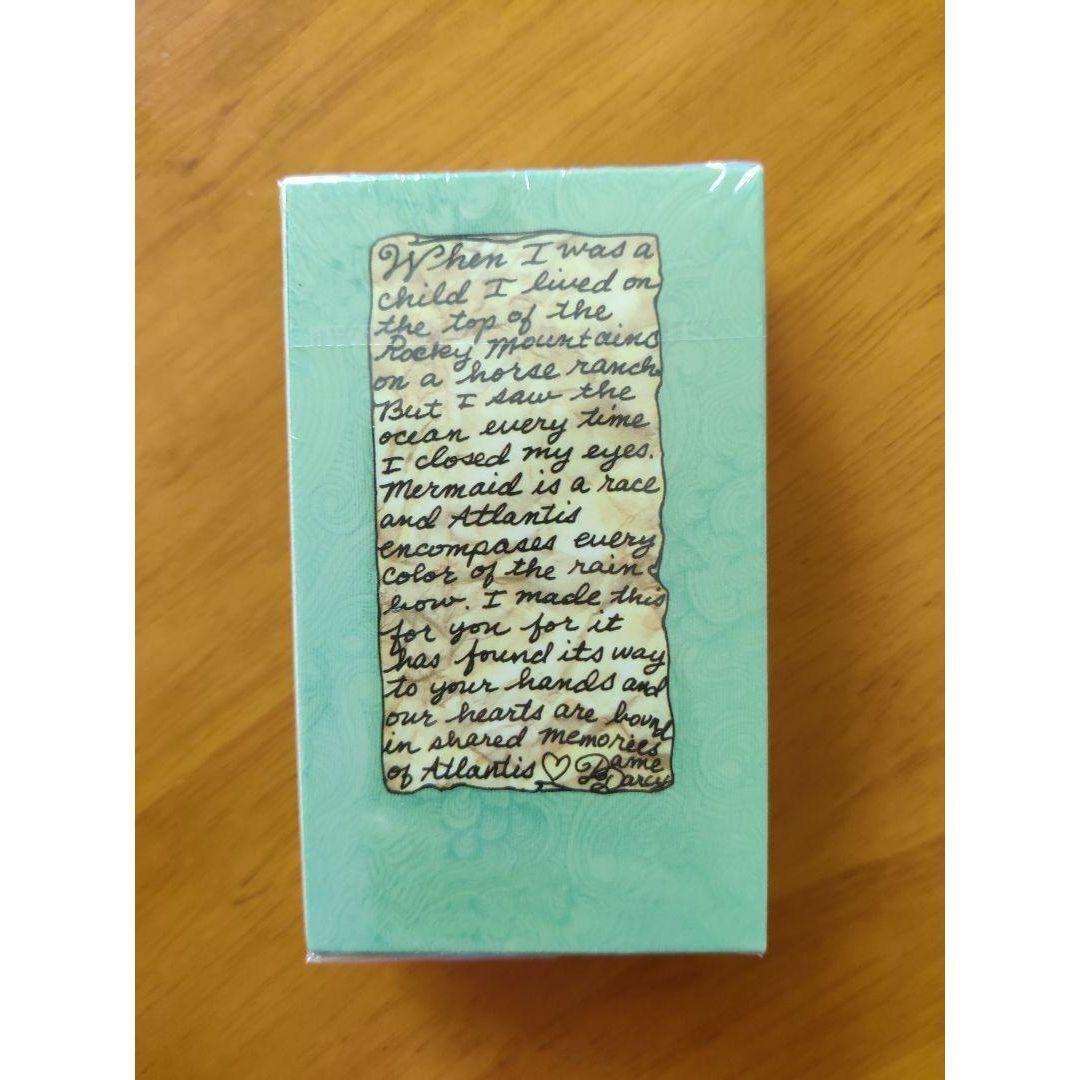 When I was a
child I lived on
the top of the
Rocky Mountains
on a horse ranch.
But I saw the
ocean every time
I closed my eyes.
Mermaid is a race
and Atlantis
encompases every
color of the rain
bow. I made this
for you for it
has found its way
to your hands and
our hearts are bound
in shared memories
of Atlantis ♡ Dame
Darcy